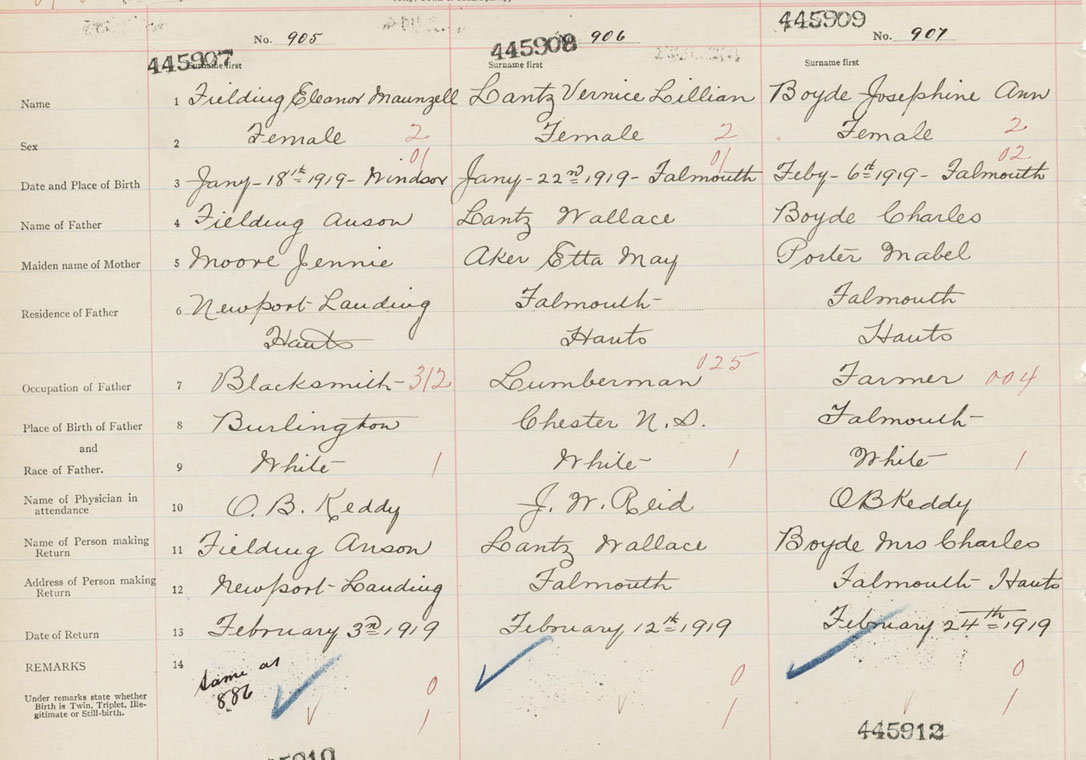 No. 905 906 No. 907
445907 445908 445909
Surname first Surname first Surname first
Name 1 Fielding Eleanor Maunzell Lantz Vernice Lillian Boyde Josephine Ann
Sex 2 Female 2 Female 2 Female 2
01 01 02
Date and Place of Birth 3 Jany-18th 1919- Windsor Jany-22nd 1919- Falmouth Feby-6th 1919- Falmouth
Name of Father 4 Fielding Anson Lantz Wallace Boyde Charles
Maiden name of Mother 5 Moore Jennie Aker Etta May Porter Mabel
Residence of Father 6 Newport Landing Falmouth Falmouth
Hants Hants Hants
Occupation of Father 7 Blacksmith-312 Lumberman 025 Farmer 004
Place of Birth of Father 8 Burlington Chester N.S. Falmouth
and
Race of Father. 9 White 1 White 1 White 1
Name of Physician in
attendance 10 O. B. Keddy J. W. Reid OB Keddy
Name of Person making
Return 11 Fielding Anson Lantz Wallace Boyde Mrs Charles
Address of Person making
Return 12 Newport Landing Falmouth Falmouth Hants
Date of Return 13 February 3rd 1919 February 12th 1919 February 24th 1919
REMARKS 14 same as
886
Under remarks state whether
Birth is Twin, Triplet, Ille-
gitimate or Still-birth.
0 0 0
1 1 1
445912